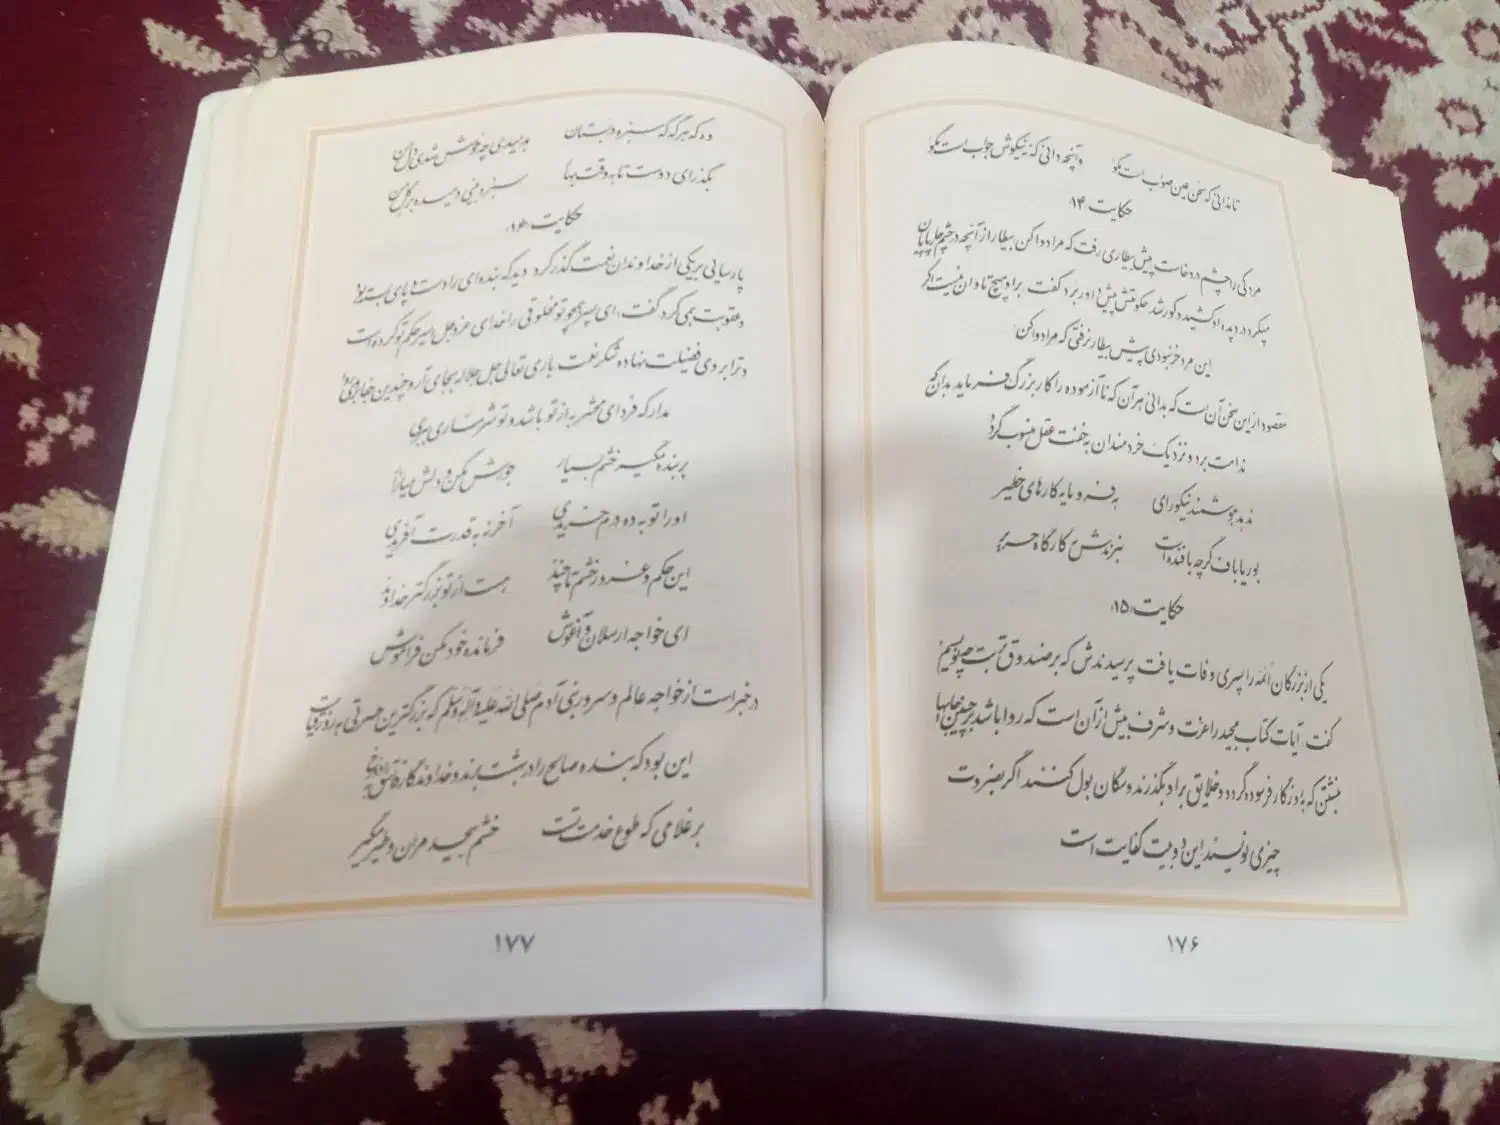 تا ندانی که سخن عین صواب است مگو وآنچه دانی که نه نیکوش جواب است مگو
حکایت (۱۴)
مردکی را چشم درد خاست پیش بیطاری رفت که مرا دوا کن بیطار از آنچه در چشم چارپایان
میکرد در دیده او کشید و کور شد. حکومتش پیش داور برد گفت بر او هیچ تاوان نیست اگر
این مرد خر نبودی پیش بیطار نرفتی که مرا دوا کن
مقصود از این سخن آن است که بدانی هر آن که ناآزموده را کار بزرگ فرماید بدان که
ندامت برد و نزدیک خردمندان به خفت عقل منسوب گردد
ندهد هوشمند نیکورای به فرومایه کارهای خطیر
بوریاباف گرچه بافنده است نبرندش به کارگاه حریر
حکایت (۱۵)
یکی از بزرگان ائمه را پسری وفات یافت پرسیدندش که بر صندوق تربت چه نویسیم
گفت: آیات کتاب مجید را عزت و شرف بیش از آن است که روا باشد بر چنین جایها
نبشتن که به روزگار فرسوده گردد و خلایق بر او بگذرند و سگان بول کنند اگر بضرورت
چیزی نویسند این دو بیت کفایت است
۱۷۶
وه که هرگه که سبزه در بستان بدمیدی چه خوش شدی دل من
بگذر ای دوست تا به وقت بهار سبزه بینی دمیده بر گل من
حکایت (۱۶)
پارسایی بر یکی از خداوندان نعمت گذر کرد دید که بنده‌ای را دست و پای بسته بود
و عقوبت همی کرد گفت، ای پسر همچو تو مخلوقی را خدای عزوجل اسیر حکم تو کرده است
و ترا بر وی فضیلت نهاده شکر نعمت باری تعالی جل جلاله بجای آر و چندین جفا بر وی روا
مدار که فردای محشر به از تو باشد و تو شرمساری بری
بر بنده مگیر خشم بسیار جورش مکن و دلش میازار
او را تو به ده درم خریدی آخر نه به قدرت آفریدی
این حکم و غرور خشم تا چند هست از تو بزرگتر خداوند
ای خواجه ارسلان و آغوش فرمانده خود مکن فراموش
در خبر است از خواجه عالم و سرور بنی آدم صلی الله علیه و آله و سلم که بزرگترین حسرتی به روز قیامت
این بود که بنده صالح را در بهشت برند و خداوندگار فاسق به دوزخ
بر غلامی که طوع خدمت تست خشم بیحد مران و طیره مگیر
۱۷۷